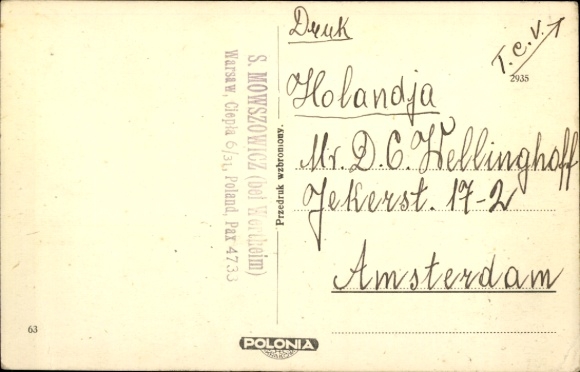 Druk
T.C.V.
2935
Holandja
Mr. D. C. Wellinghoff
Jekerst. 17-2
Amsterdam
S. MOWSZOWICZ (bei Wertheim)
Warsaw, Ciepła 6/31, Poland, Pax 4733
Przedruk wzbroniony.
63
POLONIA